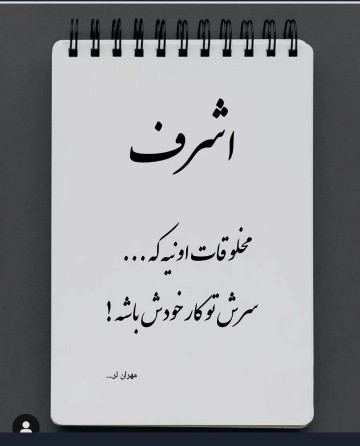 اشرف
مخلوقات اونیه که...
سرش تو کار خودش باشه!
مهران لر...